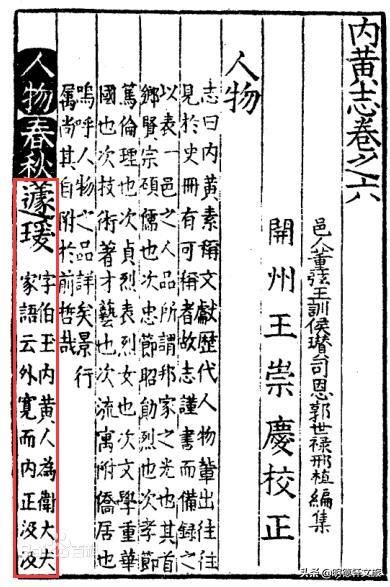 内黄志卷之六
邑人董弦王訓侯瓚司恩郭世禄邢植編集
開州王崇慶校正
人物
志曰内黄素稱文獻歷代人物輩出往往
見於史冊有可稱者故志謹書而備録之
以表一邑之人品所謂邦家之光也其首
鄉賢宗碩儒也次忠節昭勛烈也次孝節
篤倫理也次貞烈表烈女也次文學重華
國也次技術著才藝也次流寓附僑居也
嗚呼人物之品詳矣景行
属尚其自附於前哲哉
人物春秋
蘧瑗
字伯玉内黄人為衛大夫
家語云外寛而内正汲汲
Baidu百科
头条@明德轩文暖